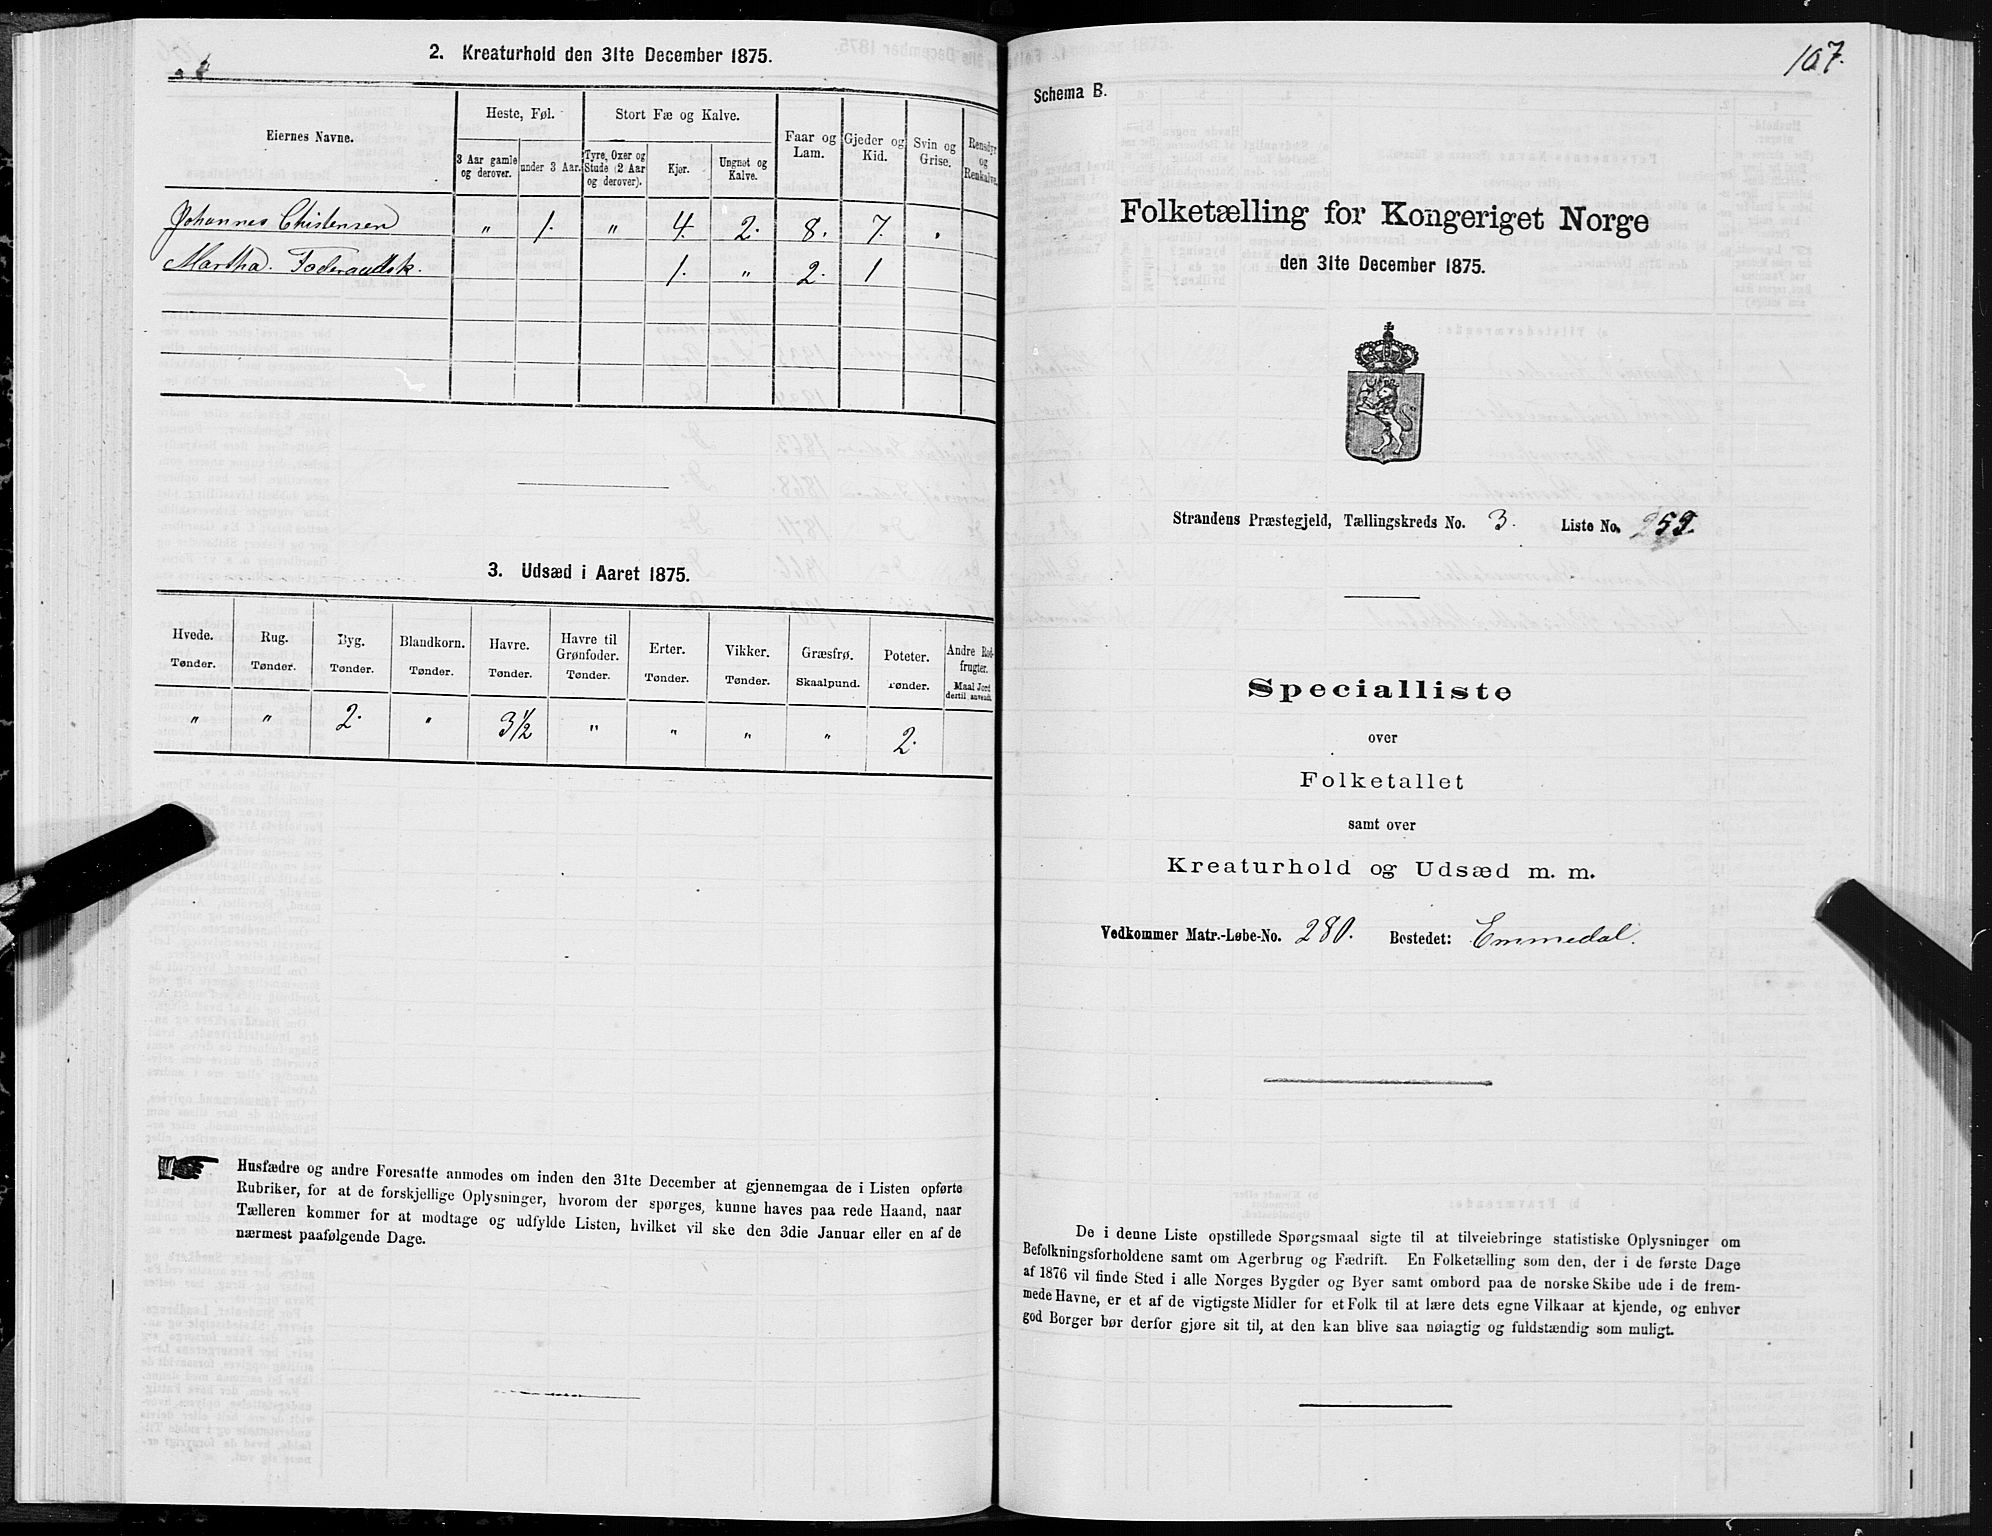 2. Kreaturhold den 31te December 1875.
Eiernes Navne.
Heste, Føl.
Stort Fæ og Kalve.
Faar og Lam.
Gjeder og Kid.
Svin og Grise.
Rensdyr og Renkalve.
3 Aar gamle og derover.
under 3 Aar.
Tyre, Oxer og Stude (2 Aar og derover).
Kjør.
Ungnøt og Kalve.
Johannes Chistensen " 1. " 4. 2. 8. 7. .
Martha. Foderaadsk. 1. " 2. 1
3. Udsæd i Aaret 1875.
Hvede. Rug. Byg. Blandkorn. Havre. Havre til Grønfoder. Erter. Vikker. Græsfrø. Poteter. Andre Rodfrugter.
Tønder. Tønder. Tønder. Tønder. Tønder. Tønder. Tønder. Tønder. Skaalpund. Tønder. Maal Jord dertil anvendt.
" " 2. " 3½ " " " " 2.
Husfædre og andre Foresatte anmodes om inden den 31te December at gjennemgaa de i Listen opførte
Rubriker, for at de forskjellige Oplysninger, hvorom der spørges, kunne haves paa rede Haand, naar
Tælleren kommer for at modtage og udfylde Listen, hvilket vil ske den 3die Januar eller en af de
nærmest paafølgende Dage.
107.
Schema B.
Folketælling for Kongeriget Norge
den 31te December 1875.
Strandens Præstegjeld, Tællingskreds No. 3. Liste No. 252.
Specialliste
over
Folketallet
samt over
Kreaturhold og Udsæd m. m.
Vedkommer Matr.-Løbe-No. 280. Bostedet: Emmedal.
De i denne Liste opstillede Spørgsmaal sigte til at tilveiebringe statistiske Oplysninger om
Befolkningsforholdene samt om Agerbrug og Fædrift. En Folketælling som den, der i de første Dage
af 1876 vil finde Sted i alle Norges Bygder og Byer samt ombord paa de norske Skibe ude i de fremmede
Havne, er et af de vigtigste Midler for et Folk til at lære dets egne Vilkaar at kjende, og enhver
god Borger bør derfor gjøre sit til, at den kan blive saa nøiagtig og fuldstændig som muligt.